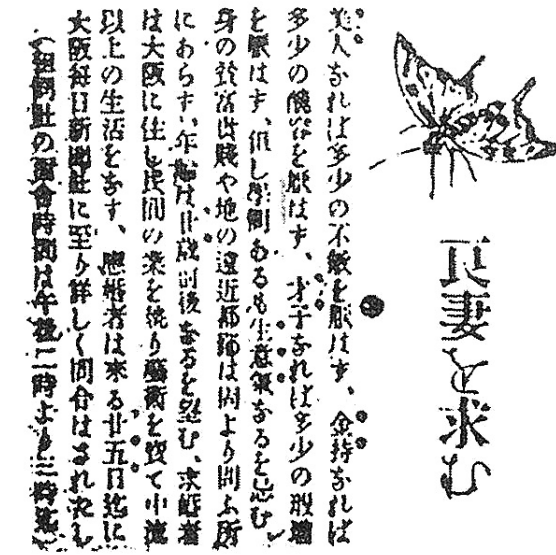 良妻を求む
美人なれば多少の不敏を厭はず、金持なれば
多少の醜容を厭はず、才子なれば多少の
を厭はず、但し學あるも生意氣なるを忌む
身の貧富貴賤や地の遠近都鄙は固より問ふ所
にあらず、年齢は廿歳前後なるを望む、求婚者
は大阪に住し民間の業を執り藝術を以て中流
以上の生活をなす、應婚者は来る廿五日迄に
大阪毎日新聞社に至り詳しく問合はされたし
(但同社の面會時間は午後二時より三時迄)